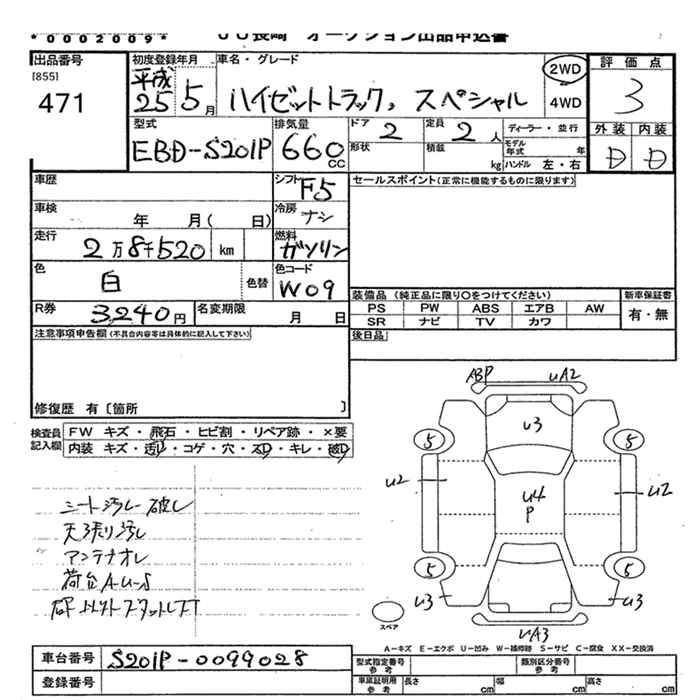 *0002009*
オークション出品申込書
出品番号
[855]
471
初度登録年月
平成
25 5月
車名・グレード
ハイゼットトラック, スペシャル
2WD
4WD
評価点
3
外装 内装
D D
型式
EBD-S201P
排気量
660
CC
ドア
2
定員
2人
形状
積載
kg
ディーラー・並行
モデル年式 年
ハンドル 左・右
車歴
シフト
F5
車検
年 月( 日)
冷房
ナシ
走行
2万8千520 km
燃料
ガソリン
色
白
色替
色コード
W09
R券
3240円
名変期限
月 日
セールスポイント(正常に機能するものに限ります)
装備品(純正品に限り〇をつけてください)
PS PW ABS エアB AW
SR ナビ TV カワ
新車保証書
有・無
後日品
注意事項申告欄(不具合内容等は具体的に記入して下さい)
修復歴 有〔箇所 〕
検査員記入欄
FW キズ・飛石・ヒビ割・リペア跡・×要
内装 キズ・汚D・コゲ・穴・スD・キレ・破D
シート汚レ 破レ
天張り汚レ
アンテナオレ
荷台A・U・S
ABP UA2
U3
5 5
U2 U2
U4
P
5 5
U3 U3
UA3
スペア
A-キズ E-エクボ U-凹み W-補修跡 S-サビ C-腐食 XX-交換済
車台番号
S201P-0099028
登録番号
型式指定番号
参考
類別区分番号
参考
車庫証明用
参考
長さ cm
幅 cm
高さ cm